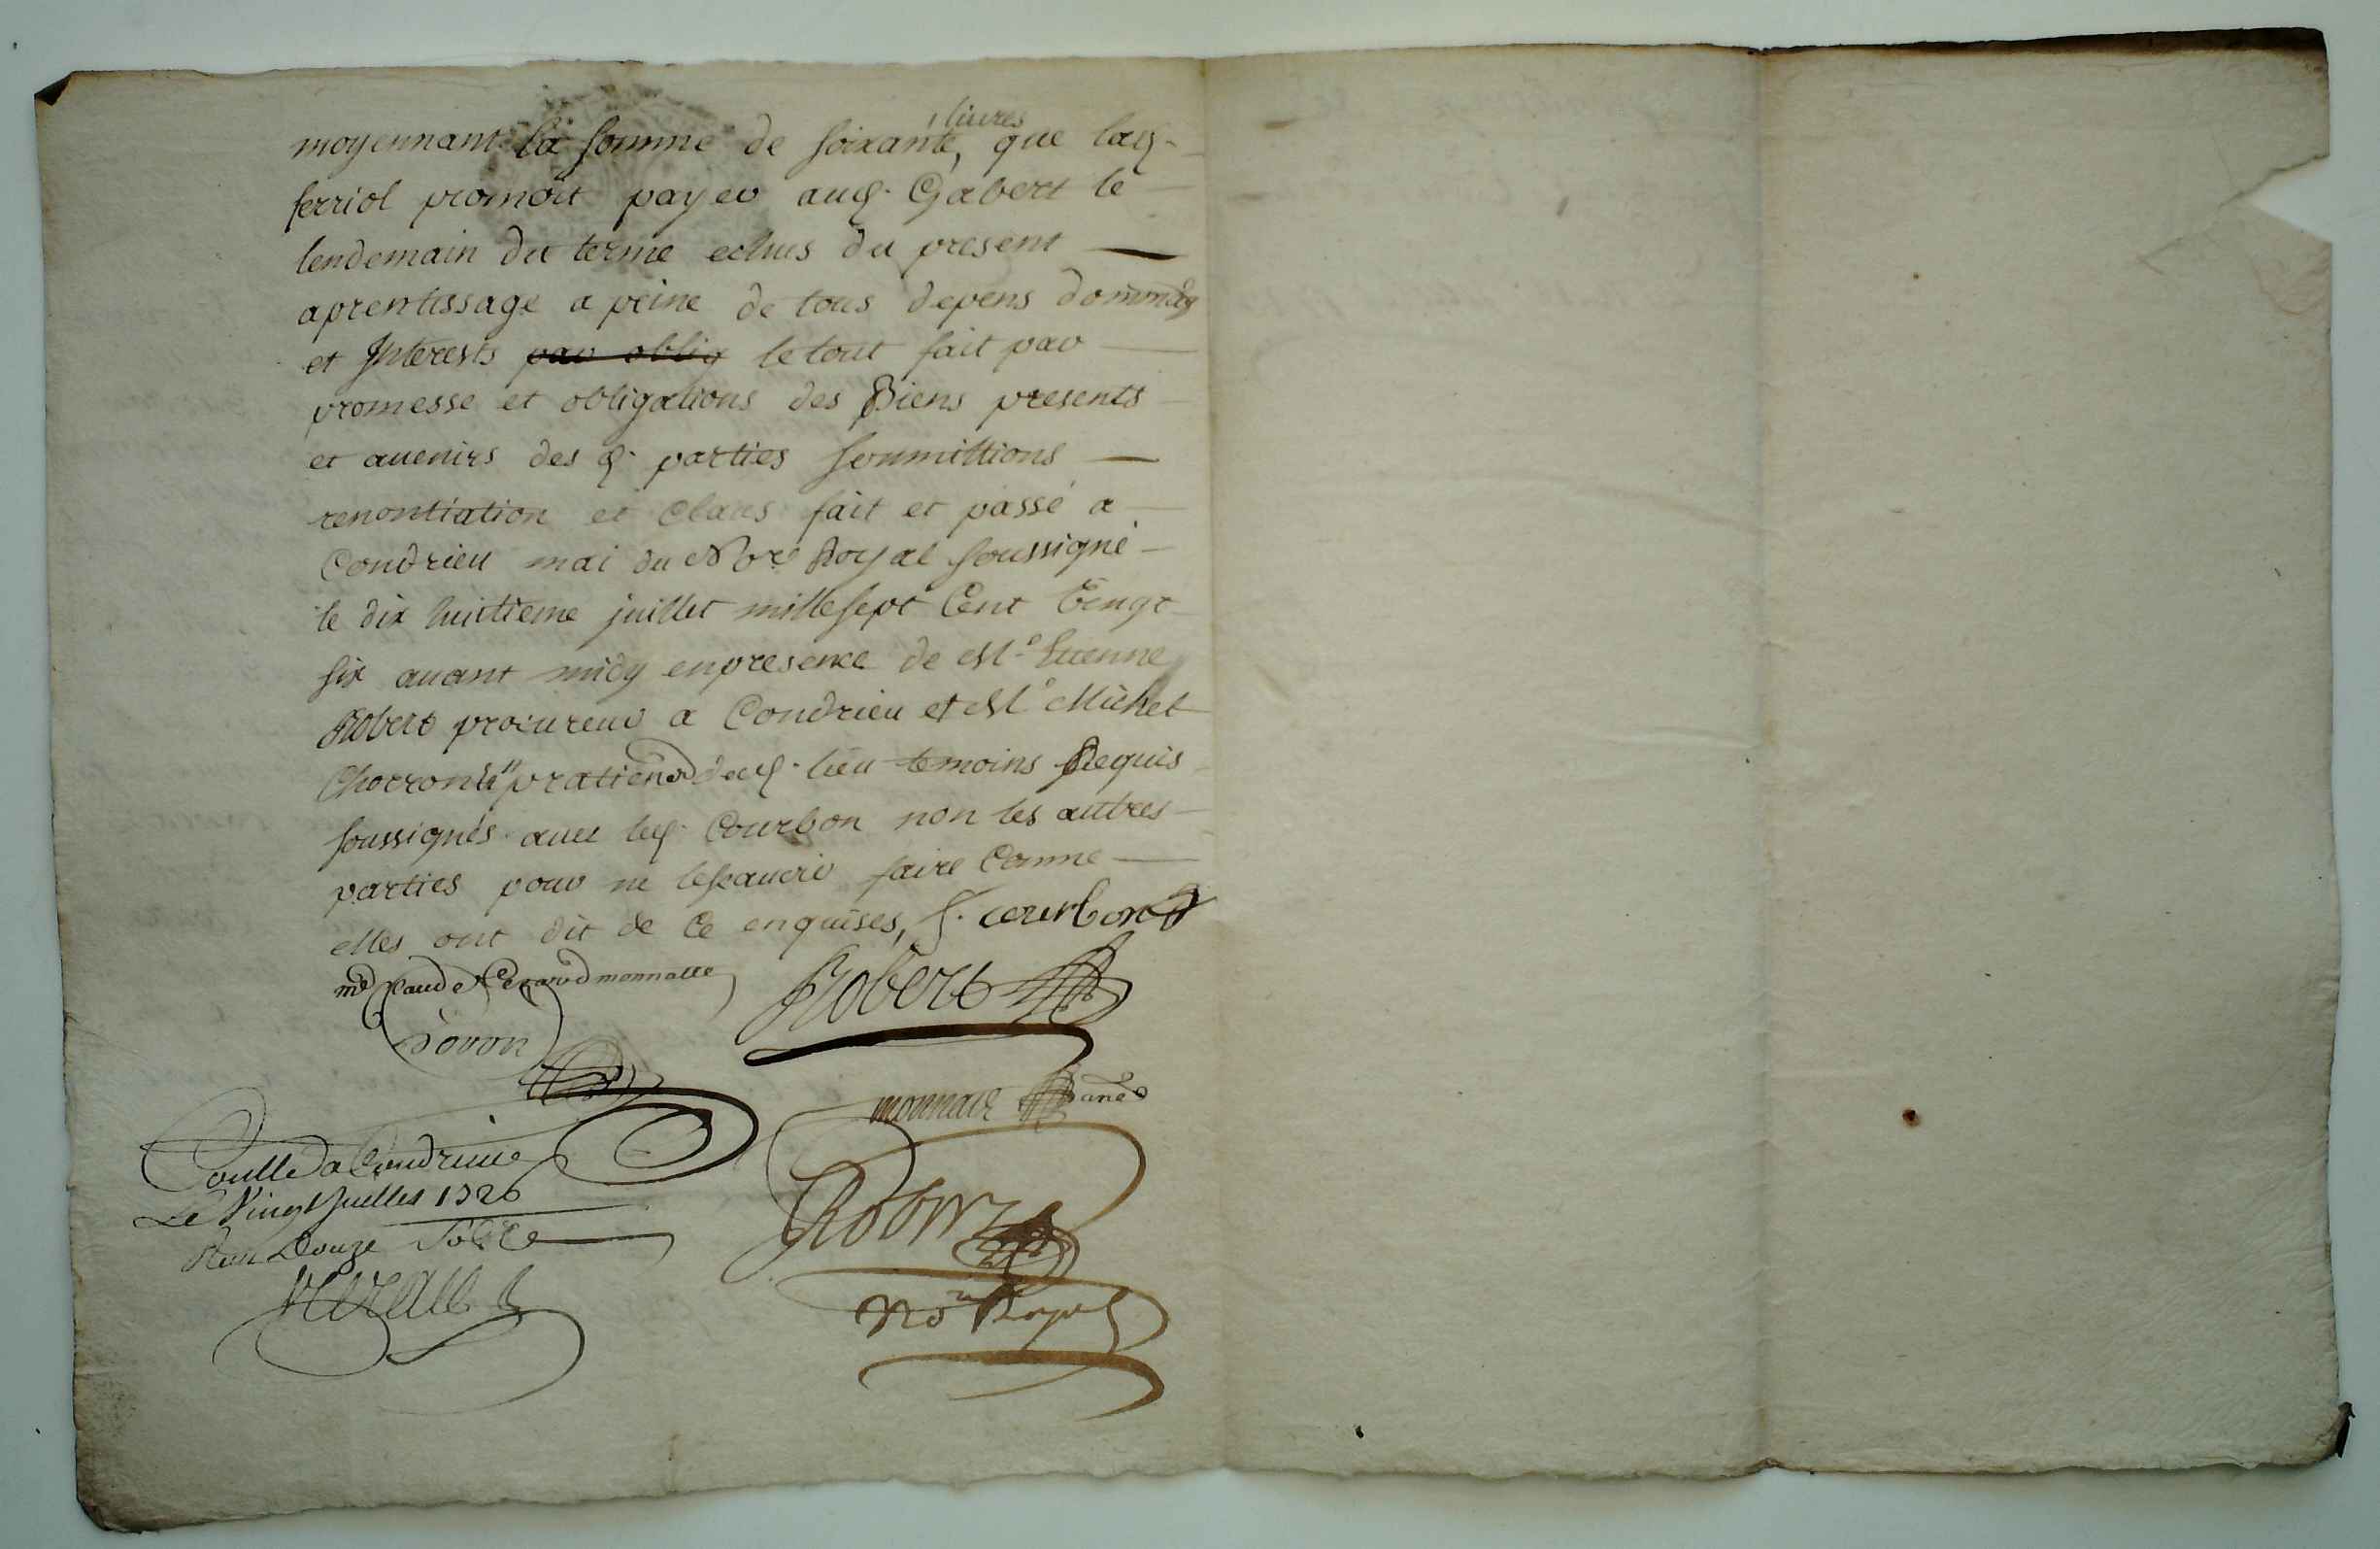 livres
moyennant la somme de soixante, que lad.
ferriol promoit payer aud. Gabert le
lendemain du terme echus du present
aprentissage a peine de tous depens dommag
et Interests par oblig le tout fait par
promesse et obligations des Biens presents
et avenirs des d. parties soumittions
renontiation et Claus fait et passé a
Condrieu mai du Nore Royal soussigné
le dix huitieme juillet mille sept Cent Vingt
six avant midy en presence de Me Etienne
Robert procureur a Condrieu et Me Michel
pratien dud. lieu temoins Requis
soussignés avec led. Courbon non les autres
parties pour ne le scavoir faire Comme
elles ont dit de Ce enquises, f. courbon
Robert
monnate
Conllé a Condrieu
Le Vingt Juillet 1726
Reçu Douze sols
Robert
No Royal